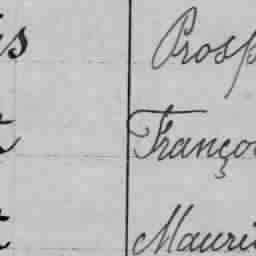 is Prosp
t Franço
t Mauri